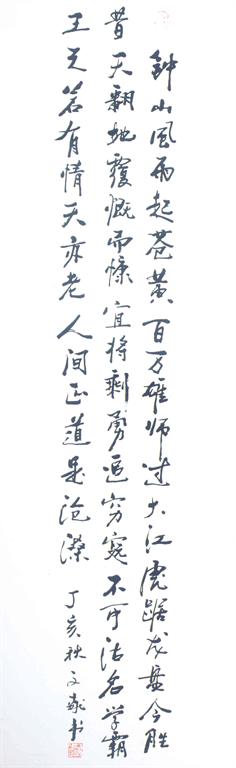 鍾山風雨起蒼黄百万雄师过大江虎踞龙盘今胜
昔天翻地覆慨而慷宜将剩勇追穷寇不可沽名学霸
王天若有情天亦老人间正道是沧桑
丁亥秋文书